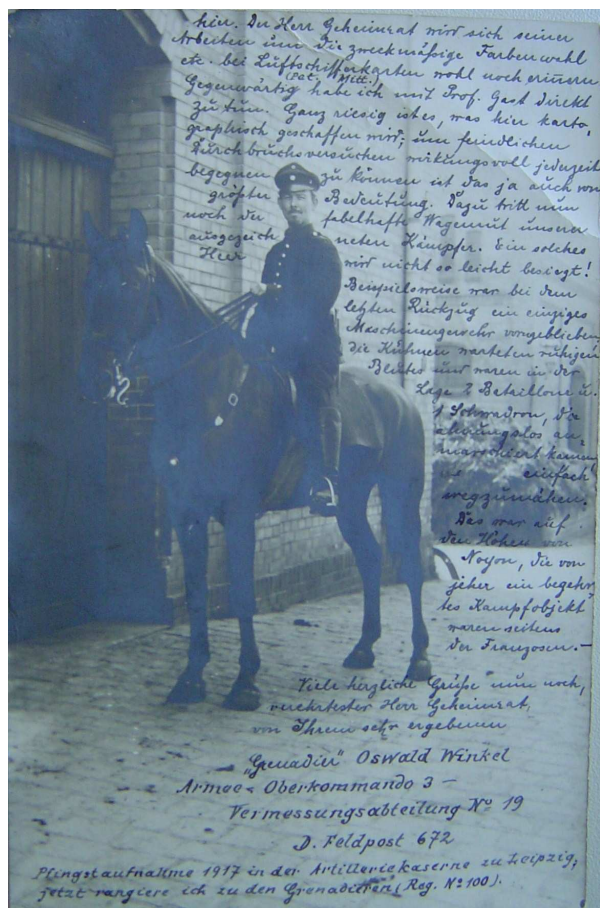 hier. Der Herr Geheimrat wird sich seiner
Arbeiten um die zweckmäßige Farbenwahl
etc. bei Luftschifferkarten wohl noch erinnern
(Pet. Mitt.)
Gegenwärtig habe ich mit Prof. Gast direkt
zu tun. Ganz riesig ist es, was hier karto-
graphisch geschaffen wird; um feindlichen
Durchbruchsversuchen wirkungsvoll jederzeit
begegnen zu können ist das ja auch von
größter Bedeutung. Dazu tritt nun
noch der fabelhafte Wagemut unserer
ausgezeichneten Kämpfer. Ein solches
Heer wird nicht so leicht besiegt!
Beispielsweise war bei dem
letzten Rückzug ein einziges
Maschinengewehr vorngeblieben
die Kühnen warteten ruhigen
Blutes und waren in der
Lage 2 Bataillone u.
1 Schwadron, die
ahnungslos an-
marschiert kamen
einfach
wegzumähen.
Das war auf
den Höhen von
Noyon, die von
jeher ein begehr-
tes Kampfobjekt
waren seitens
der Franzosen. –
Viele herzliche Grüße nun noch,
verehrtester Herr Geheimrat,
von Ihrem sehr ergebenen
„Grenadier" Oswald Winkel
Armee-Oberkommando 3 –
Vermessungsabteilung No 19
D. Feldpost 672
Pfingstaufnahme 1917 in der Artilleriekaserne zu Leipzig;
jetzt rangiere ich zu den Grenadieren (Reg. No 100).